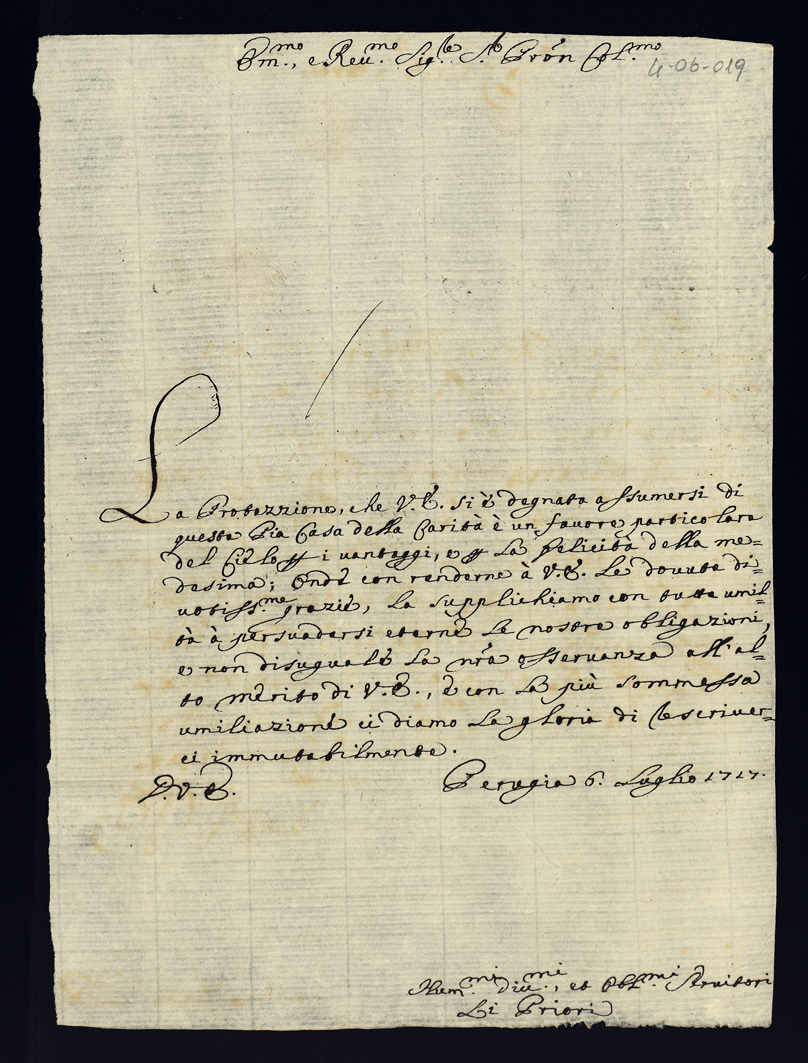 Em.mo, e Reu.mo Sig.re S.r Pròn Col.mo
4-06-019
La Protezzione, che V.E. si è degnata assumersi di
questa Pia Casa della Carità è un fauore particolare
del Cielo p i vantaggi, e p la felicità della me=
desima; Onde con renderne à V.E. le douute di=
uotiss.me grazie, la supplichiamo con tutta umil=
tà à persuadersi eterne le nostre obligazioni,
e non disuguale la nr̃a osseruanza all'al=
to merito di V.E., e con la più sommessa
umiliazione ci diamo la gloria di scriuer=
ci immutabilmente.
D.V.E.
Perugia 6. Luglio 1717.
Hum.mi Diu.mi, et Obl.mi Seruitori
Li Priori